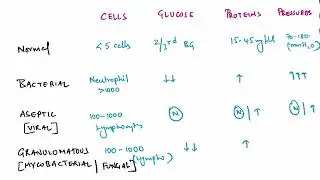 CELLS GLUCOSE PROTEINS PRESSURES
NORMAL <5 cells 2/3rd BG 15-45 mg/dl 70-180 (mmH2O)
BACTERIAL Neutrophil >1000 ↓↓ ↑ ↑↑↑
ASEPTIC [VIRAL] 100-1000 Lymphocytes N N/↑ N/↑
GRANULOMATOUS 100-1000 ↓↓ ↑
[MYCOBACTERIAL | FUNGAL] (Lympho)